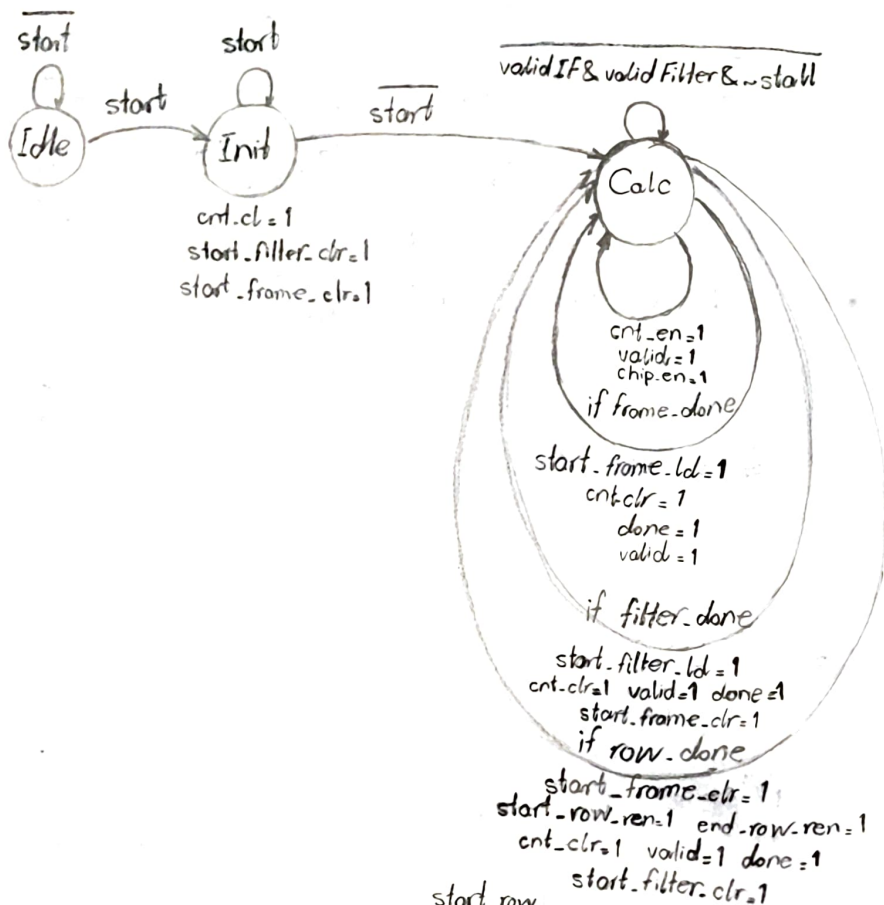 start
Idle
start
start
Init
cnt-cl = 1
start-filter-clr=1
start-frame-clr=1
start
validIF& validFilter&~stall
Calc
cnt-en=1
valid=1
chip-en=1
if frame-done
start-frame-ld=1
cnt-clr = 1
done = 1
valid = 1
if filter-done
start-filter-ld=1
cnt-clr=1 valid=1 done=1
start-frame-clr=1
if row-done
start-frame-clr=1
start-row-ren=1 end-row-ren=1
cnt-clr=1 valid=1 done=1
start-filter-clr=1
start row